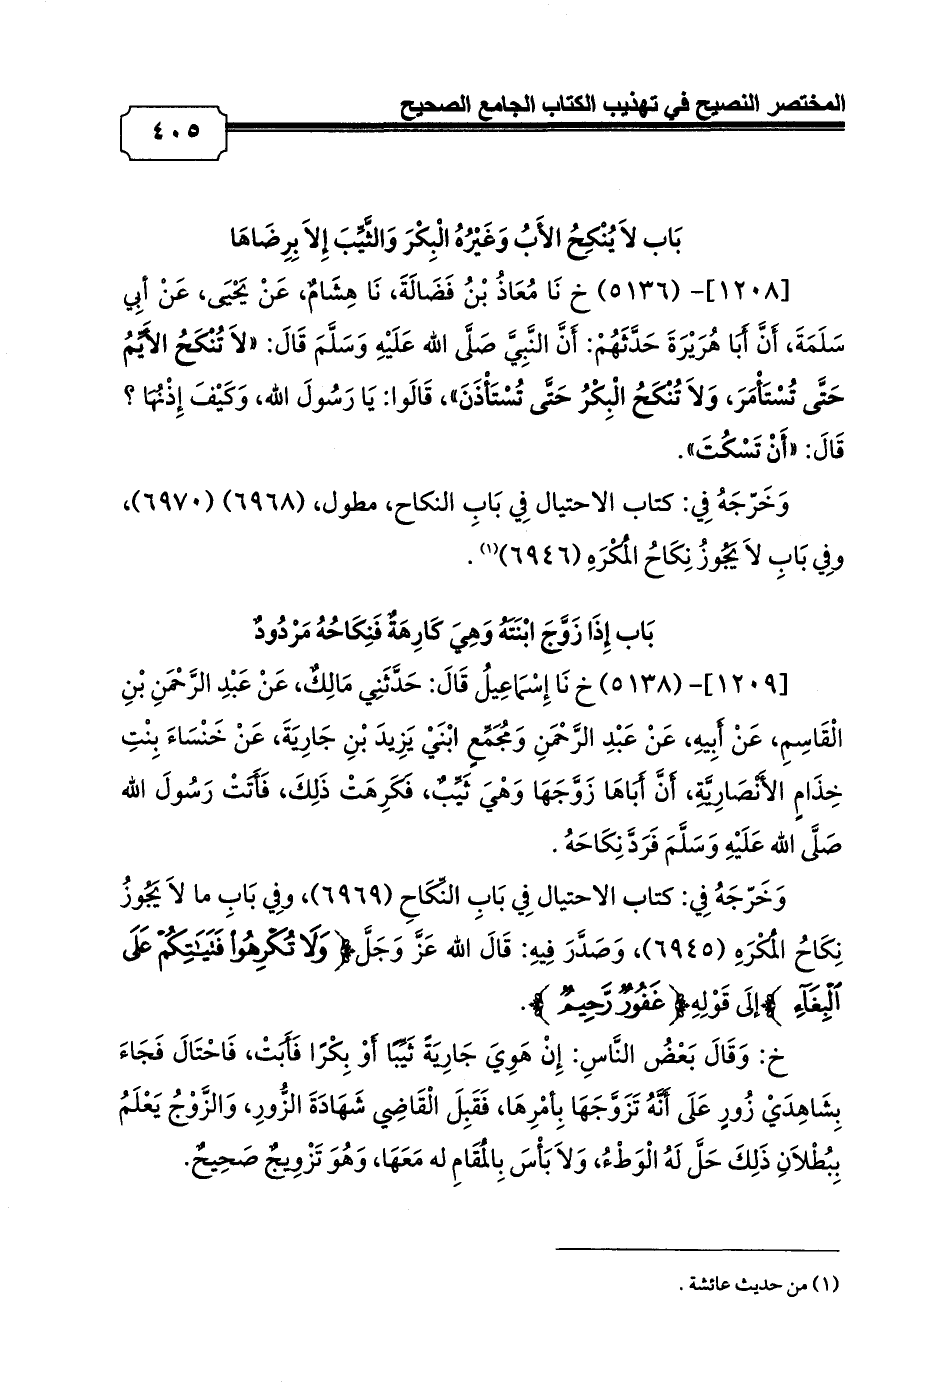 المختصر النصيح في تهذيب الكتاب الجامع الصحيح
٤٠٥
بَاب لاَ يُنْكِحُ الأَبُ وَغَيْرُهُ الْبِكْرَ وَالثَّيِّبَ إِلاَ بِرِضَاهَا
[١٢٠٨]- (٥١٣٦) خ نَا مُعَاذُ بْنُ فَضَالَةَ، نَا هِشَامٌ، عَنْ يَحْيَى، عَنْ أَبِي
سَلَمَةَ، أَنَّ أَبَا هُرَيْرَةَ حَدَّثَهُمْ: أَنَّ النَّبِيَّ صَلَّى الله عَلَيْهِ وَسَلَّمَ قَالَ: «لاَ تُنْكَحُ الأَيِّمُ
حَتَّى تُسْتَأْمَرَ، وَلاَ تُنْكَحُ الْبِكْرُ حَتَّى تُسْتَأْذَنَ»، قَالُوا: يَا رَسُولَ الله، وَكَيْفَ إِذْنُهَا ؟
قَالَ: «أَنْ تَسْكُتَ».
وَخَرَّجَهُ فِي: كتاب الاحتيال فِي بَابِ النكاح، مطول، (٦٩٦٨) (٦٩٧٠)،
وفِي بَابِ لاَ يَجُوزُ نِكَاحُ الْمُكْرَهِ (٦٩٤٦)(١) .
بَاب إِذَا زَوَّجَ ابْنَتَهُ وَهِيَ كَارِهَةٌ فَنِكَاحُهُ مَرْدُودٌ
[١٢٠٩]- (٥١٣٨) خ نَا إِسْمَاعِيلُ قَالَ: حَدَّثَنِي مَالِكٌ، عَنْ عَبْدِ الرَّحْمَنِ بْنِ
الْقَاسِمِ، عَنْ أَبِيهِ، عَنْ عَبْدِ الرَّحْمَنِ وَمُجَمِّعٍ ابْنَيْ يَزِيدَ بْنِ جَارِيَةَ، عَنْ خَنْسَاءَ بِنْتِ
خِذَامٍ الأَنْصَارِيَّةِ، أَنَّ أَبَاهَا زَوَّجَهَا وَهْيَ ثَيِّبٌ، فَكَرِهَتْ ذَلِكَ، فَأَتَتْ رَسُولَ الله
صَلَّى الله عَلَيْهِ وَسَلَّمَ فَرَدَّ نِكَاحَهُ .
وَخَرَّجَهُ فِي: كتاب الاحتيال فِي بَابِ النِّكَاحِ (٦٩٦٩)، وفِي بَابِ ما لاَ يَجُوزُ
نِكَاحُ الْمُكْرَهِ (٦٩٤٥)، وَصَدَّرَ فِيهِ: قَالَ الله عَزَّ وَجَلَّ ﴿ وَلَا تُكْرِهُوا فَتَيَاتِكُمْ عَلَى
الْبِغَاءِ ﴾ إِلَى قَوْلِهِ ﴿ غَفُورٌ رَّحِيمٌ ﴾.
خ: وَقَالَ بَعْضُ النَّاسِ: إِنْ هَوِيَ جَارِيَةً ثَيِّبًا أَوْ بِكْرًا فَأَبَتْ، فَاحْتَالَ فَجَاءَ
بِشَاهِدَيْ زُورٍ عَلَى أَنَّهُ تَزَوَّجَهَا بِأَمْرِهَا، فَقَبِلَ الْقَاضِي شَهَادَةَ الزُّورِ، وَالزَّوْجُ يَعْلَمُ
بِبُطْلاَنِ ذَلِكَ حَلَّ لَهُ الْوَطْءُ، وَلاَ بَأْسَ بِالْمُقَامِ له مَعَهَا، وَهُوَ تَزْوِيجٌ صَحِيحٌ.
(١) من حديث عائشة .